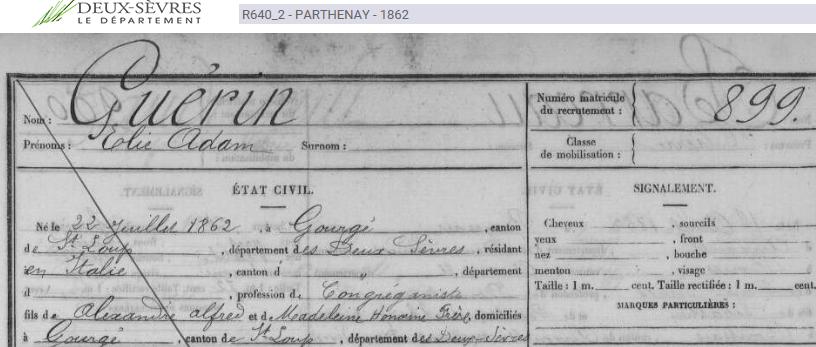 DEUX-SÈVRES
LE DÉPARTEMENT
R640_2 - PARTHENAY - 1862
Nom : Guérin
Prénoms : Elie Adam Surnom :
Numéro matricule du recrutement : 899.
Classe de mobilisation :
ÉTAT CIVIL.
Né le 22 Juillet 1862, à Gourgé, canton
de St Loup, département des Deux-Sèvres, résidant
en Italie, canton d " , département
d , profession de Congréganiste
fils de Alexandre alfred et de Madeleine Honorine Frère, domiciliés
à Gourgé, canton de St Loup, département des Deux-Sèvres
SIGNALEMENT.
Cheveux , sourcils
yeux , front
nez , bouche
menton , visage
Taille : 1 m. cent. Taille rectifiée : 1 m. cent.
MARQUES PARTICULIÈRES :